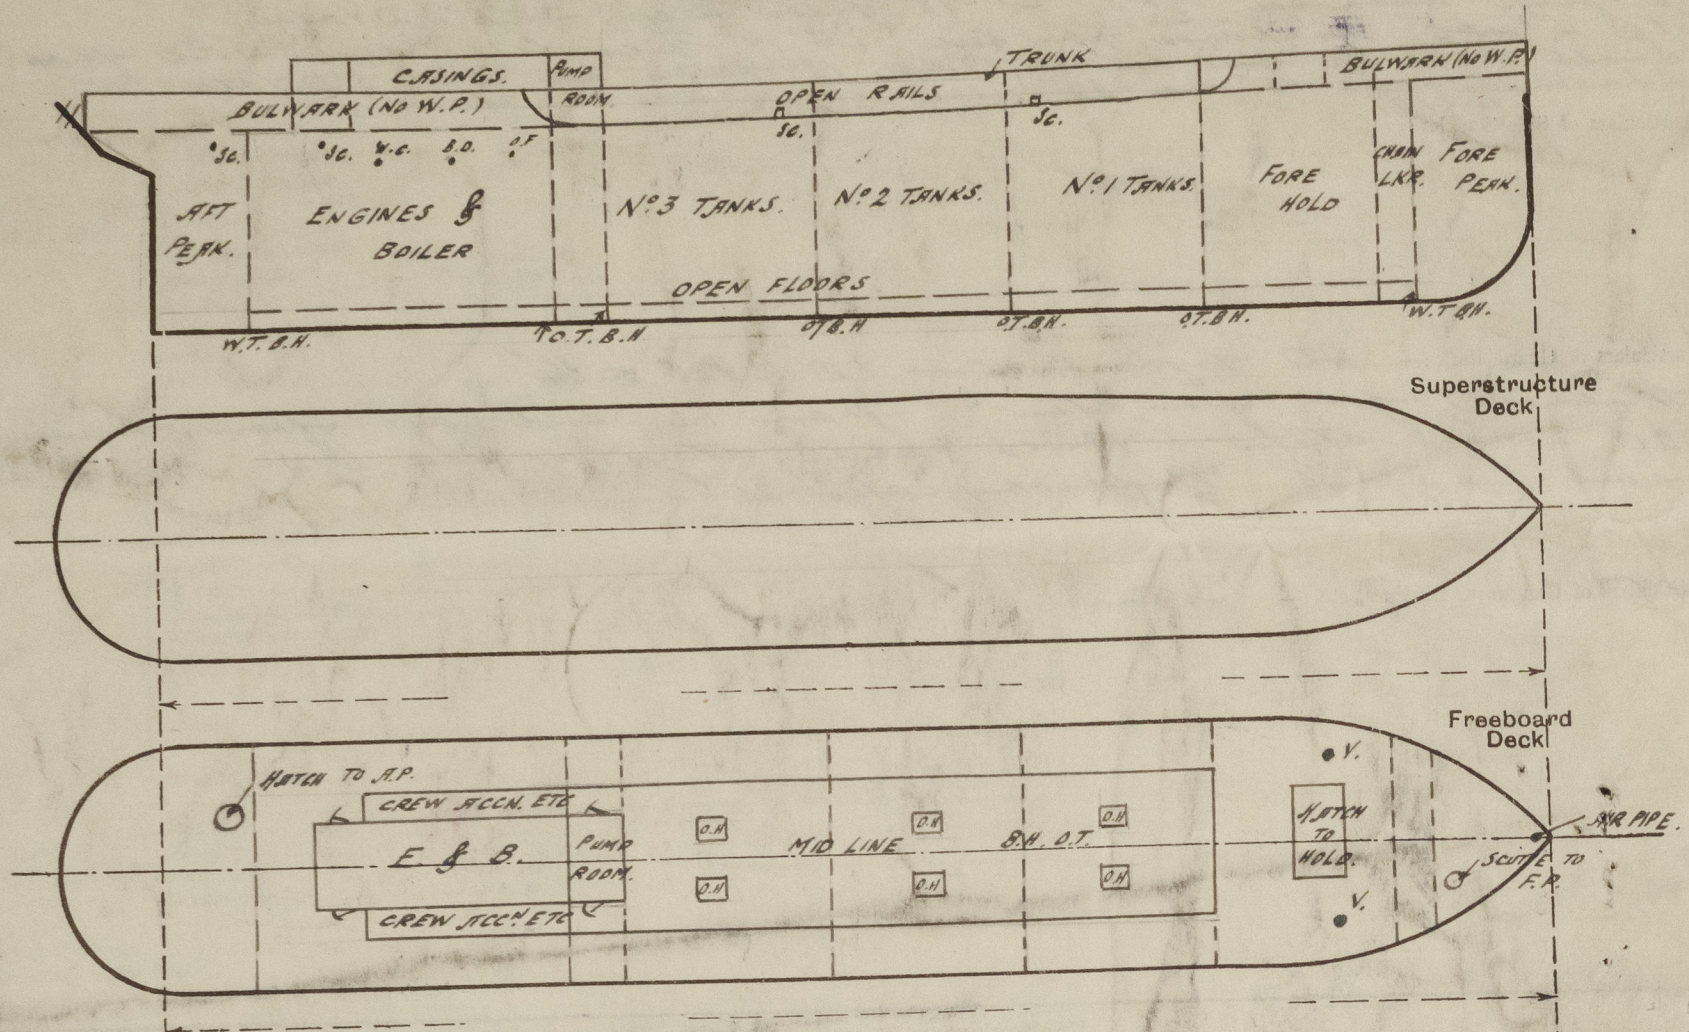 CASINGS.
PUMP
ROOM.
TRUNK
BULWARK (NO W.P.)
BULWARK (NO W.P.)
OPEN RAILS
SC.
SC.
SC.
SC.
W.C.
B.D.
O.F
AFT
PEAK.
ENGINES &
BOILER
Nº3 TANKS.
Nº2 TANKS.
Nº1 TANKS.
FORE
HOLD
CHAIN
LKR.
FORE
PEAK.
OPEN FLOORS
W.T.B.H.
O.T.B.H
O.T.B.H
O.T.B.H.
O.T.B.H.
W.T.B.H.
Superstructure
Deck
Freeboard
Deck
HATCH TO A.P.
CREW ACCN. ETC
E. & B.
PUMP
ROOM.
CREW ACCN. ETC
O.H
O.H
O.H
MID LINE B.H. O.T.
O.H
O.H
O.H
V.
HATCH
TO
HOLD.
V.
AIR PIPE.
SCUTTLE TO
F.P.